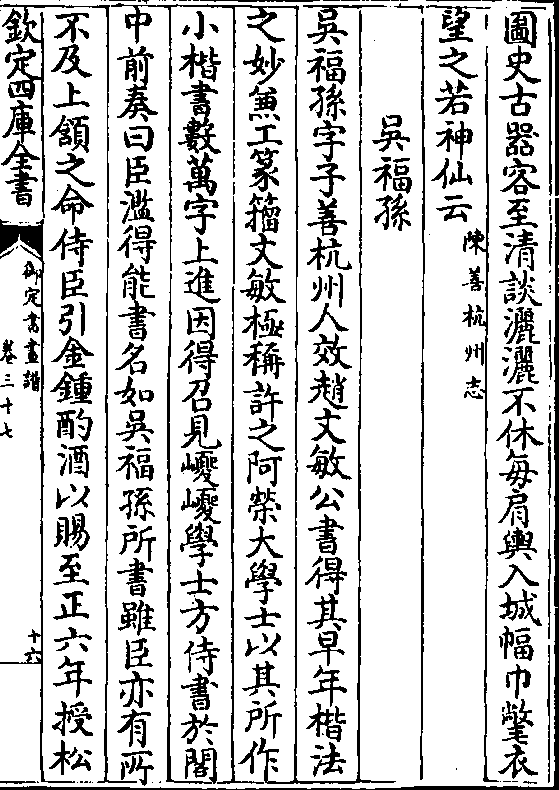 圖史古器客至清談灑灑不休每肩輿入城幅巾氅衣
望之若神仙云陳善杭州志
吳福孫
吳福孫字子善杭州人效趙文敏公書得其早年楷法
之妙兼工篆籕文敏極稱許之阿榮大學士以其所作
小楷書數萬字上進因得召見巙巙學士方侍書於閣
中前奏曰臣濫得能書名如吳福孫所書雖臣亦有所
不及上頷之命侍臣引金鍾酌酒以賜至正六年授松
欽定四庫全書
御定書畫譜
卷三十七
十六